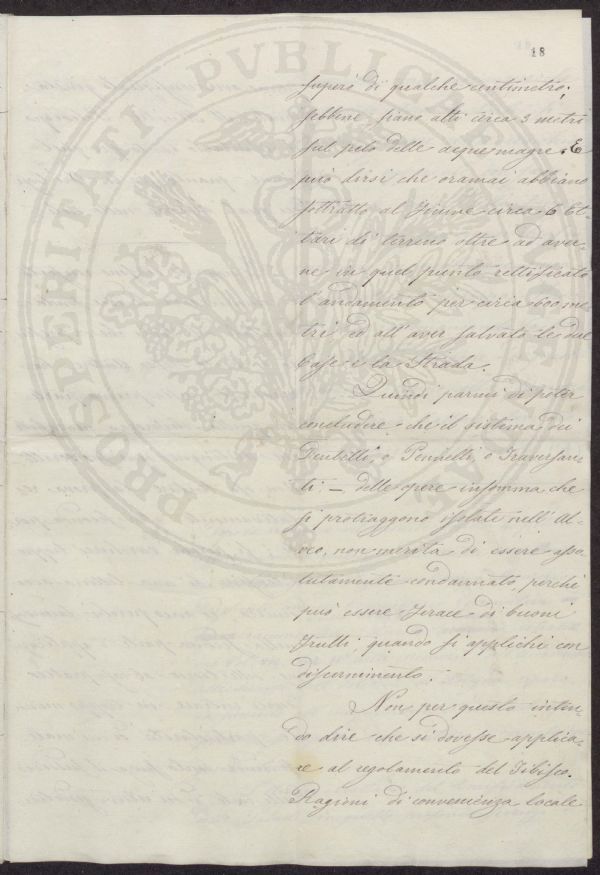 18
superò di qualche centimetro;
sebbene siano alti circa 3 metri
sul pelo delle acque magre. E
può dirsi che oramai abbiano
sottratto al Fiume circa 6 Et-
tari di terreno oltre ad aver-
ne in quel punto rettificato
l'andamento per circa 600 me-
tri ed all'aver salvato le due
Case i la Strada.
Quindi parmi di poter
concludere che il sistema dei
Denbilli, o Pennelli, o Traversan-
ti; — delle opere insomma che
si protraggono isolate nell'Al-
veo, non merita di essere asso-
lutamente condannato, perchè
può essere ferace di buoni
frutti, quando si applichi con
discernimento.
Non per questo inten-
do dire che si dovesse applica-
re al regolamento del Tibisco.
Ragioni di convenienza locale
PROSPERITATI PVBLICAE